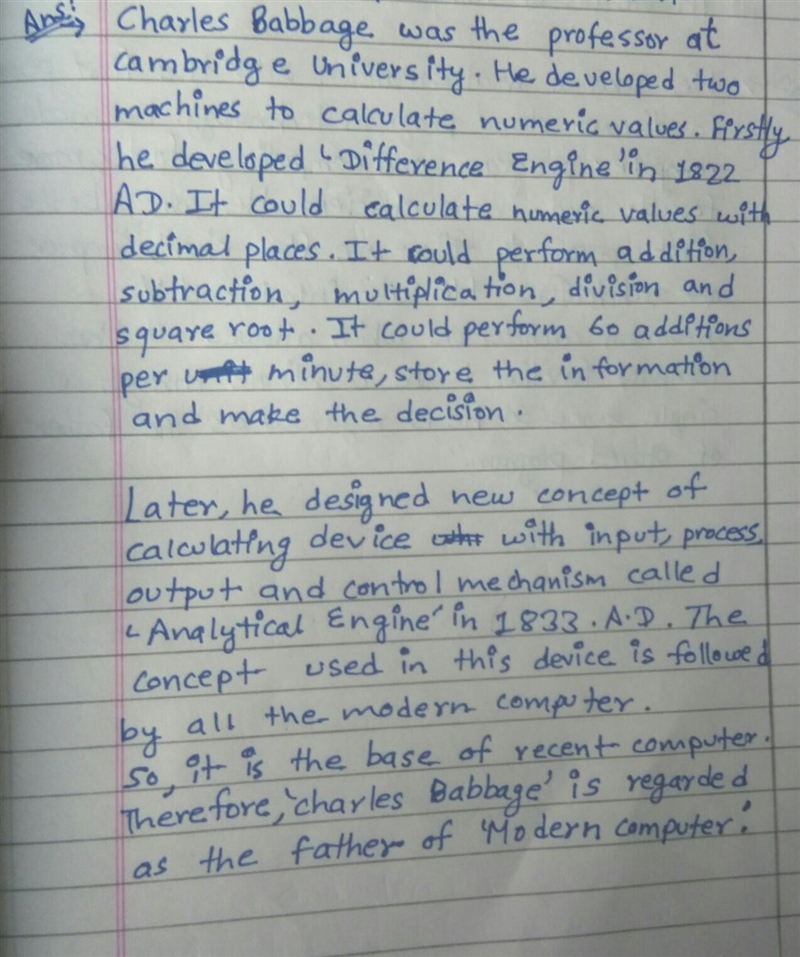 Ans:
Charles Babbage was the professor at
Cambridge University. He developed two
machines to calculate numeric values. Firstly
he developed 'Difference Engine' in 1822
AD. It could calculate numeric values with
decimal places. It could perform addition,
subtraction, multiplication, division and
square root. It could perform 60 additions
per minute, store the information
and make the decision.
Later, he designed new concept of
calculating device with input, process,
output and control mechanism called
'Analytical Engine' in 1833.A.D. The
concept used in this device is followed
by all the modern computer.
So, it is the base of recent computer.
Therefore, 'charles Babbage' is regarded
as the father of 'Modern computer'.